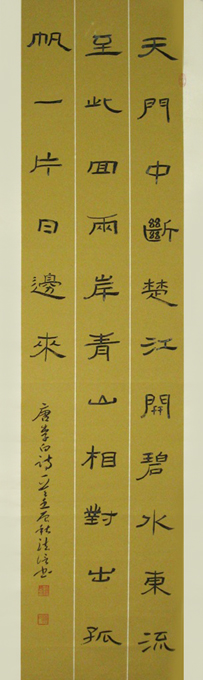 天門中斷楚江開碧水東流
至此回兩岸青山相對出孤
帆一片日邊來
唐李白詩一首壬辰秋